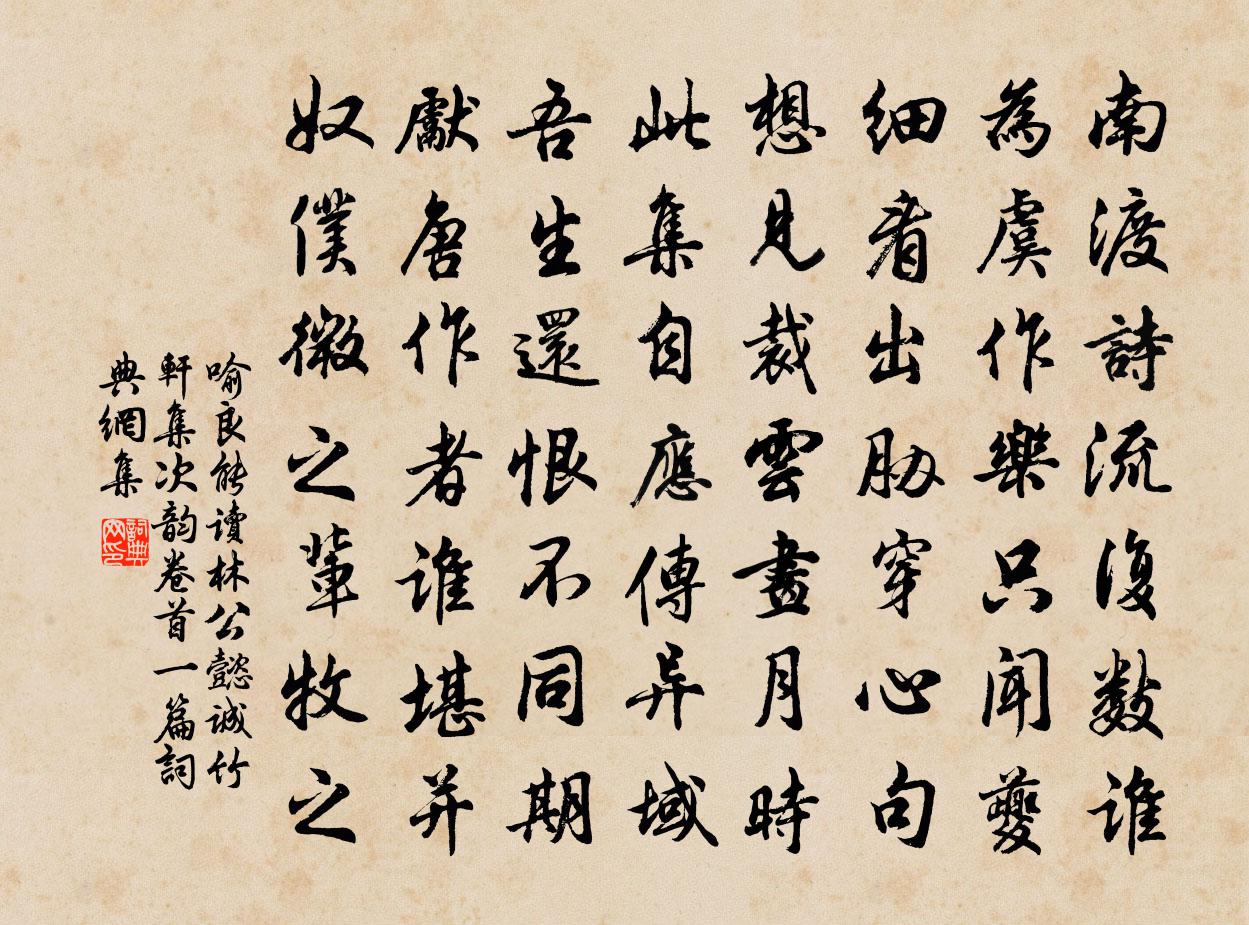 南渡詩流復數誰
為虞作樂只聞夔
細看出胁穿心句
想見裁雲畫月時
此集自應傳异域
吾生還恨不同期
獻唐作者誰堪并
奴僕微之輩牧之
喻良能讀林公懿誠竹
軒集次韵卷首一篇詞
典網集
詞典网印